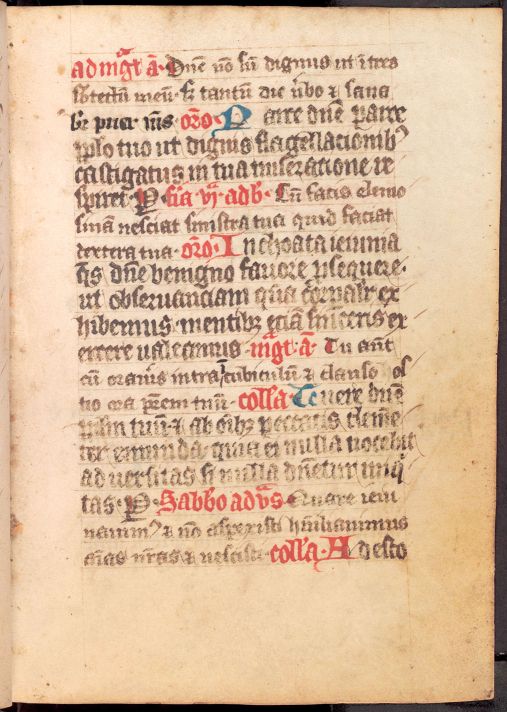 ad mgt̄ a̅· Dn̄e nō sū dignus ut ītres
s̄b tectū meū· s̄ tantū dic ūbo ⁊ sana
bit̄ puer m̄s oro· Parce dn̄e parce
pplo tuo ut dignis flagellacionibꝰ
castigatus in tua miseratione re
spiret· P̄ fīa vj· ad b̄· Cū facis elemo
sinam nesciat sinistra tua quid faciat
dextera tua· oro· Inchoata ieiunia
q̄s dn̄e benigno fauore ꝓsequere·
ut obseruanciam quā corpalr̄ ex
hibemus· mentibꝫ ecīa sinceris ex
ercere ualeamus· mgt̄· a̅· Tu aut̄
cū oraūis intra cubiculū ⁊ clauso os
tio ora prēm tuū· coll̄a· Tuere dn̄e
pplm tuū· ⁊ ab oībꝫ peccatis cleme
ter emunda· quia ei nulla nocebit
aduersitas si nulla dn̄etur iniq
tas· P̄· Sabbo ad v̄s Quare ieiu
nauimꝰ ⁊ nō aspexisti humiliauimus
aīas nr̄as ⁊ nescisti· coll̄a· Adesto